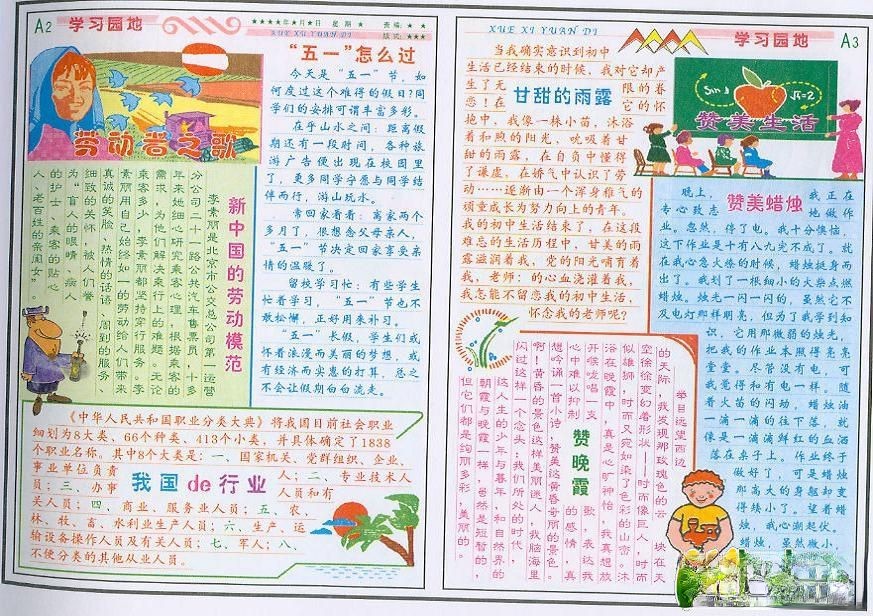 A2 学习园地
★★★★年★月★日 星期 ★ 责编：★ ★
XUE XI YUAN DI 版式：★★★
劳动者之歌
“五一”怎么过
今天是“五一”节，如
何度过这个难得的假日？同
学们的安排可谓丰富多彩。
在乎山水之间：距离假
期还有一段时间，各种旅
游广告便出现在校园里
了，更多同学宁愿与同学结
伴而行，游山玩水。
常回家看看：离家两个
多月了，很想念父母亲人，
“五一”节决定回家享受亲
情的温暖了。
留校学习忙：有些学生
忙着学习，“五一”节也不
敢松懈，正好用来补习。
“五一”长假，学生们或
怀着浪漫而美丽的梦想，或
有经济而实惠的打算，总之
不会让假期白白流走。
新中国的劳动模范
李素丽是北京市公交总公司第一运营
分公司二十一路公共汽车售票员，十多
年来她细心研究乘客心理，根据乘客的
需求，为他们解决乘行上的难题。无论
乘客多少，李素丽都坚持穿行服务。李
素丽用自己始终如一的劳动给人们带来
真诚的笑脸、热情的话语、周到的服务、
细致的关怀，被人们誉
为“盲人的眼睛、病人
的护士、乘客的贴心
人、老百姓的亲闺女”。
《中华人民共和国职业分类大典》将我国目前社会职业
细划为8大类、66个种类、413个小类，并具体确定了1838
个职业名称。其中8个大类是：一、国家机关、党群组织、企业、
事业单位负责人；二、专业技术人
员；三、办事人员和有
关人员；四、商业、服务业人员；五、农、
林、牧、畜、水利业生产人员；六、生产、运
输设备操作人员及有关人员；七、军人；八、
不便分类的其他从业人员。
我国de行业
XUE XI YUAN DI
学习园地 A3
甘甜的雨露
当我确实意识到初中
生活已经结束的时候，我对它却产
生了无限的眷
恋！在它的怀
抱中，我像一株小苗，沐浴
着和煦的阳光，吮吸着甘
甜的雨露，在自负中懂得
了谦虚，在娇气中认识了劳
动……逐渐由一个浑身稚气的
顽童成长为努力向上的青年。
我的初中生活结束了，在这段
难忘的生活历程中，甘美的雨
露滋润着我，党的阳光哺育着
我，老师：的心血浇灌着我，
我怎能不留恋我的初中生活，
怀念我的老师呢？
Sin
√π=2
赞美生活
赞美蜡烛
晚上，我正在
专心致志地做作
业。忽然，停了电。我十分懊恼，
这下作业是十有八九完不成了。就
在我心急火燎的时候，蜡烛挺身而
出了。我划了一根细小的火柴点燃
蜡烛。烛光一闪一闪的，虽然它不
及电灯那样明亮，但为了我学到知
识，它用那微弱的烛光，
把我的作业本照得亮亮
堂堂。尽管没有电，可
我觉得和有电一样。随
着火苗的闪动，蜡烛油
一滴一滴的往下落，就
像是一滴滴鲜红的血洒
落在桌子上。作业终于
做好了，可是蜡烛
那高大的身躯却变
得矮小了。望着蜡
烛，我心潮起伏。
蜡烛，虽然微小，
赞晚霞
举目远望西边
的天际，我发现那玫瑰色的云块在天
空徐徐变幻着形状——时而像巨人，时而
似雄狮，时而又宛如染了色彩的山峦。沐
浴在晚霞中，真是心旷神怡，我真想放
开喉咙唱一支歌，表达我
心中难以抑制的感情，真
想吟诵一首小诗，赞美这黄昏奇丽的景色。
啊！黄昏的景色这样美丽迷人，我脑海里
闪过这样一个念头：我们所处的时代，
这人生的少年与暮年，和自然界的
朝霞与晚霞一样，虽然是短暂的，
但它们都是绚丽多彩，美丽的。